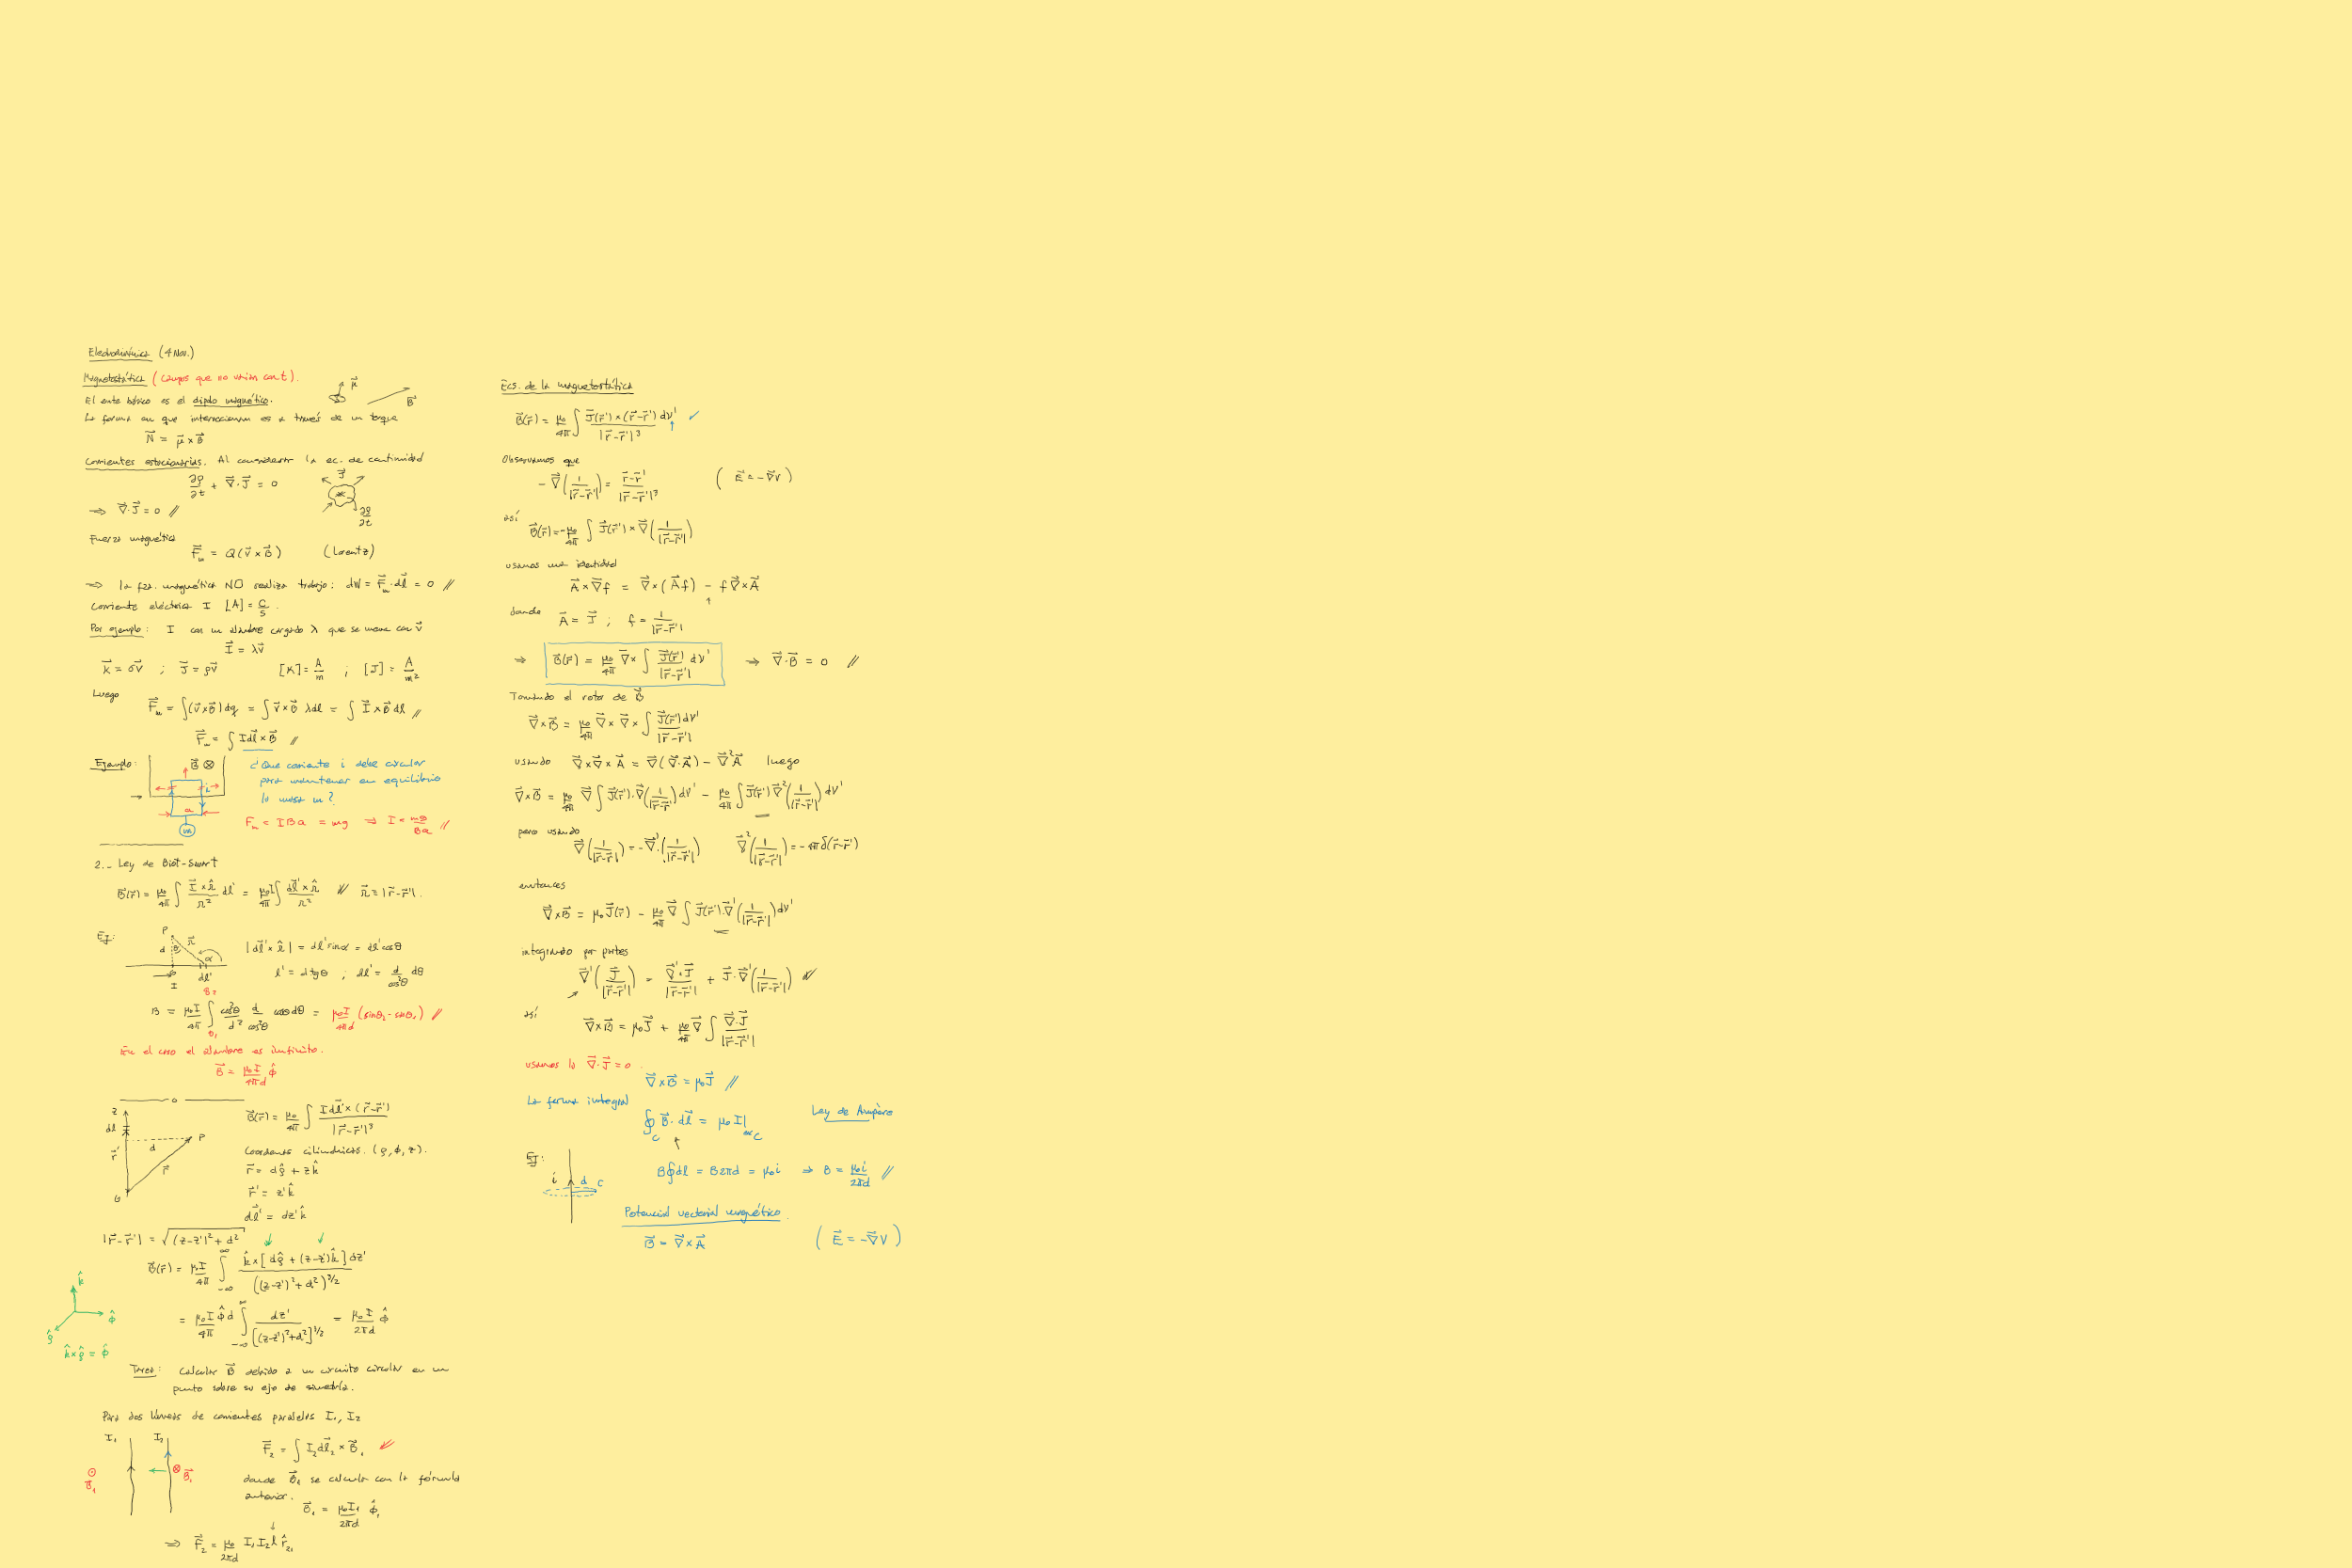 Electrodinámica (4 Nov.)
Magnetostática (campos que no varían con t).
El ente básico es el dipolo magnético.
La forma en que interaccionan es a través de un torque
N⃗ = μ⃗ × B⃗
μ⃗
B⃗
Corrientes estacionarias. Al considerar la ec. de continuidad
∂ρ/∂t + ∇⃗·J⃗ = 0
J⃗
∂ρ/∂t
⇒ ∇⃗·J⃗ = 0 //
Fuerza magnética
F⃗_m = Q(v⃗ × B⃗) (Lorentz)
⇒ la fza. magnética NO realiza trabajo: dW = F⃗_m·dl⃗ = 0 //
Corriente eléctrica I [A] = C/s.
Por ejemplo: I con un alambre cargado λ que se mueve con v⃗
I⃗ = λv⃗
K⃗ = σv⃗ ; J⃗ = ρv⃗ [K] = A/m ; [J] = A/m²
Luego
F⃗_m = ∫(v⃗×B⃗)dq = ∫ v⃗×B⃗ λdl = ∫ I⃗×B⃗ dl //
F⃗_m = ∫ I dl⃗ × B⃗ //
Ejemplo: B⃗ ⊗ ¿Que corriente i debe circular
para mantener en equilibrio
la masa m?
i
a
m
F_m = I B a = mg ⇒ I = mg/Ba //
2.- Ley de Biot-Savart
B⃗(r⃗) = μ₀/4π ∫ I⃗×r̂/r² dl' = μ₀I/4π ∫ dl⃗'×r̂/r² // r⃗ = |r⃗-r⃗'|.
Ej: P d θ r⃗ α dl' I
|dl⃗' × r̂| = dl' sinα = dl' cosθ
l' = d tgθ ; dl' = d/cos²θ dθ
B = μ₀I/4π ∫_{θ₁}^{θ₂} cos²θ/d² d/cos²θ cosθ dθ = μ₀I/4πd (sinθ₂ - sinθ₁) //
En el caso el alambre es infinito.
B⃗ = μ₀I/4πd φ̂
z dl r⃗' d P r⃗ O
B⃗(r⃗) = μ₀/4π ∫ I dl⃗'×(r⃗-r⃗')/|r⃗-r⃗'|³
Coordenas cilindricas. (ρ, φ, z).
r⃗ = dρ̂ + zk̂
r⃗' = z'k̂
dl⃗' = dz'k̂
|r⃗-r⃗'| = √((z-z')² + d²)
B⃗(r⃗) = μ₀I/4π ∫_{-∞}^{∞} k̂×[dρ̂ + (z-z')k̂]dz'/((z-z')²+d²)^{3/2}
k̂
φ̂
ρ̂
k̂×ρ̂ = φ̂
= μ₀I/4π φ̂ d ∫_{-∞}^{∞} dz'/[(z-z')²+d²]^{3/2} = μ₀I/2πd φ̂
Tarea: Calcular B⃗ debido a un circuito circular en un
punto sobre su eje de simetría.
Para dos líneas de corrientes paralelas I₁, I₂
I₁ I₂
F⃗₂ = ∫ I₂dl⃗₂ × B⃗₁
⊙ B⃗₁ ⊗ B⃗₁
donde B⃗₁ se calcula con la fórmula
anterior.
B⃗₁ = μ₀I₁/2πd φ̂₁
⇒ F⃗₂ = μ₀/2πd I₁I₂ l r̂₂₁
Ecs. de la magnetostática
B⃗(r⃗) = μ₀/4π ∫ J⃗(r⃗')×(r⃗-r⃗')/|r⃗-r⃗'|³ dv' ✓
Observamos que
-∇⃗(1/|r⃗-r⃗'|) = r⃗-r⃗'/|r⃗-r⃗'|³ (E⃗ = -∇⃗V)
así
B⃗(r⃗) = -μ₀/4π ∫ J⃗(r⃗') × ∇⃗(1/|r⃗-r⃗'|)
usamos una identidad
A⃗×∇⃗f = ∇⃗×(A⃗f) - f∇⃗×A⃗
donde A⃗ = J⃗ ; f = 1/|r⃗-r⃗'|
⇒ B⃗(r⃗) = μ₀/4π ∇⃗× ∫ J⃗(r⃗')/|r⃗-r⃗'| dv' ⇒ ∇⃗·B⃗ = 0 //
Tomando el rotor de B⃗
∇⃗×B⃗ = μ₀/4π ∇⃗×∇⃗× ∫ J⃗(r⃗')dv'/|r⃗-r⃗'|
usando ∇⃗×∇⃗×A⃗ = ∇⃗(∇⃗·A⃗) - ∇⃗²A⃗ luego
∇⃗×B⃗ = μ₀/4π ∇⃗ ∫ J⃗(r⃗')·∇⃗(1/|r⃗-r⃗'|)dv' - μ₀/4π ∫ J⃗(r⃗')∇⃗²(1/|r⃗-r⃗'|)dv'
pero usando
∇⃗(1/|r⃗-r⃗'|) = -∇⃗'(1/|r⃗-r⃗'|) ∇⃗²(1/|r⃗-r⃗'|) = -4πδ(r⃗-r⃗')
entonces
∇⃗×B⃗ = μ₀J⃗(r⃗) - μ₀/4π ∇⃗ ∫ J⃗(r⃗')·∇⃗'(1/|r⃗-r⃗'|)dv'
integrando por partes
∇⃗'(J⃗/|r⃗-r⃗'|) = ∇⃗'·J⃗/|r⃗-r⃗'| + J⃗·∇⃗'(1/|r⃗-r⃗'|) //
así
∇⃗×B⃗ = μ₀J⃗ + μ₀/4π ∇⃗ ∫ ∇⃗·J⃗/|r⃗-r⃗'|
usamos la ∇⃗·J⃗ = 0.
∇⃗×B⃗ = μ₀J⃗ //
La forma integral
∮_C B⃗·dl⃗ = μ₀I|_{enc C} Ley de Ampère
Ej: i d C
B∮dl = B2πd = μ₀i ⇒ B = μ₀i/2πd //
Potencial vectorial magnético.
B⃗ = ∇⃗×A⃗ (E⃗ = -∇⃗V)